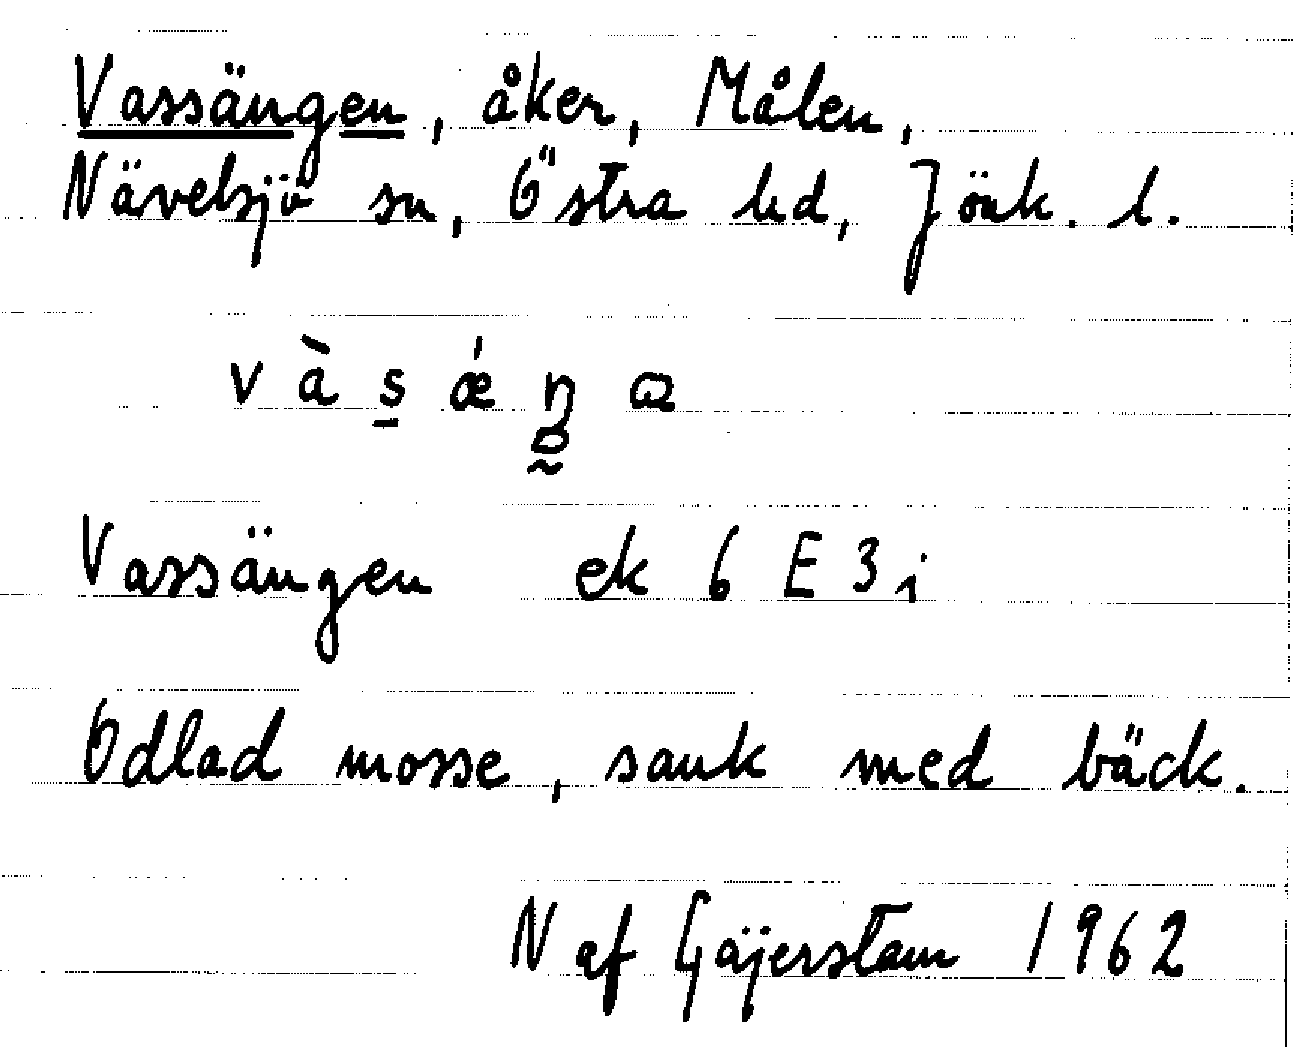 Vassängen, åker, Målen,
Nävelsjö sn, Östra hd, Jönk. l.
v à s̱ ǽ ŋ
Vassängen ek 6 E 3 i
Odlad mosse, sank med bäck.
N af Gäjerstam 1962